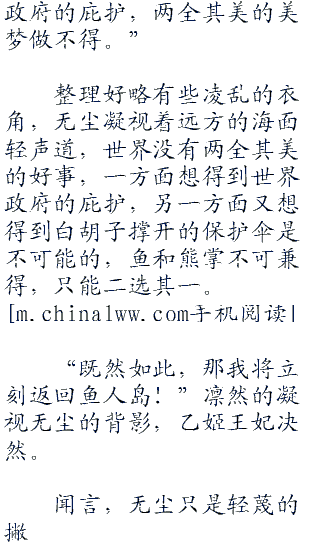 政府的庇护，两全其美的美
梦做不得。”
整理好略有些凌乱的衣
角，无尘凝视着远方的海面
轻声道，世界没有两全其美
的好事，一方面想得到世界
政府的庇护，另一方面又想
得到白胡子撑开的保护伞是
不可能的，鱼和熊掌不可兼
得，只能二选其一。
[m.china1ww.com手机阅读|
“既然如此，那我将立
刻返回鱼人岛！”凛然的凝
视无尘的背影，乙姬王妃决
然。
闻言，无尘只是轻蔑的
撇